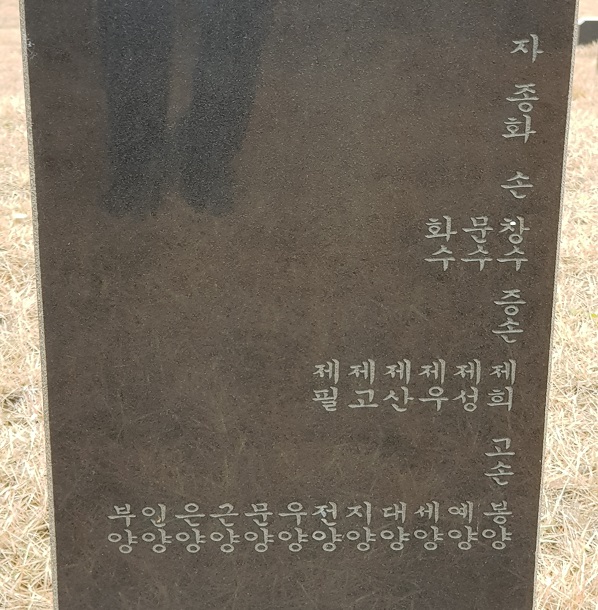 자
종화
손
창수 문수 화수
증손
제희 제성 제우 제산 제고 제필
고손
봉양 예양 세양 대양 지양 전양 우양 문양 근양 은양 인양 부양